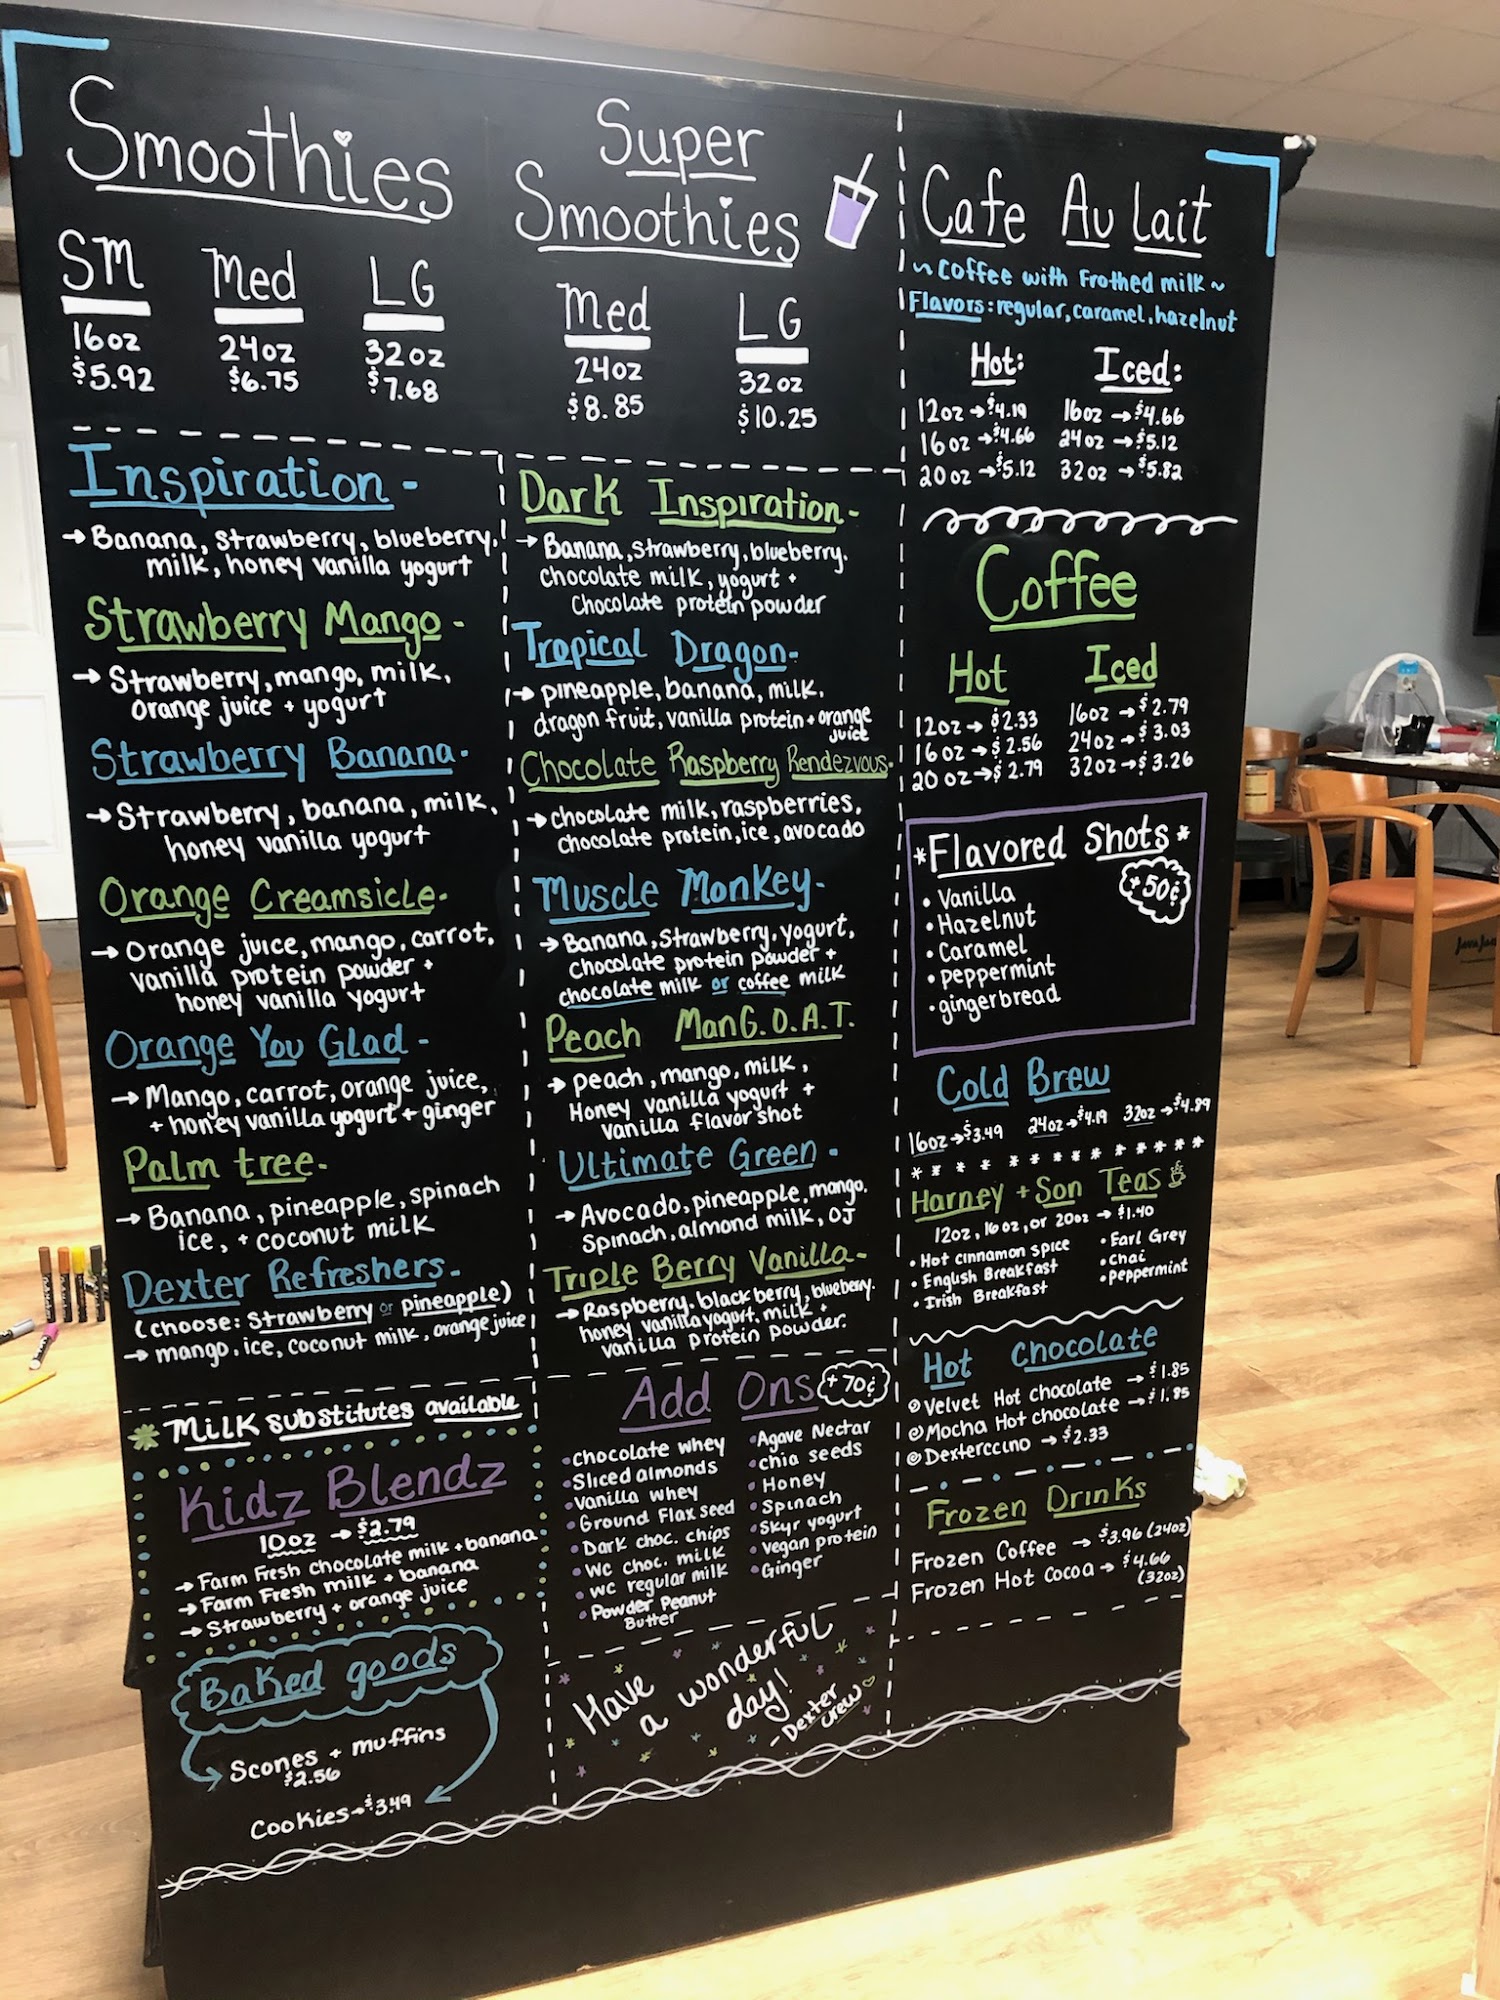 Smoothies
SM Med LG
16oz 24oz 32oz
$5.92 $6.75 $7.68
Inspiration -
→ Banana, strawberry, blueberry,
milk, honey vanilla yogurt
Strawberry Mango -
→ Strawberry, mango, milk,
orange juice + yogurt
Strawberry Banana -
→ Strawberry, banana, milk,
honey vanilla yogurt
Orange Creamsicle -
→ Orange juice, mango, carrot,
vanilla protein powder +
honey vanilla yogurt
Orange You Glad -
→ Mango, carrot, orange juice,
+ honey vanilla yogurt + ginger
Palm tree -
→ Banana, pineapple, spinach
ice, + coconut milk
Dexter Refreshers -
(choose: strawberry or pineapple)
→ mango, ice, coconut milk, orange juice
* Milk substitutes available
Kidz Blendz
10oz → $2.79
→ Farm Fresh chocolate milk + banana
→ Farm Fresh milk + banana
→ Strawberry + orange juice
Baked goods
Scones + muffins
$2.56
Cookies → $3.49
Super
Smoothies
Med LG
24oz 32oz
$8.85 $10.25
Dark Inspiration -
→ Banana, strawberry, blueberry,
chocolate milk, yogurt +
Chocolate protein powder
Tropical Dragon -
→ pineapple, banana, milk,
dragon fruit, vanilla protein + orange
juice
Chocolate Raspberry Rendezvous -
→ chocolate milk, raspberries,
chocolate protein, ice, avocado
Muscle Monkey -
→ Banana, strawberry, yogurt,
chocolate protein powder +
chocolate milk or coffee milk
Peach ManG.O.A.T.
→ peach, mango, milk,
Honey vanilla yogurt +
vanilla flavor shot
Ultimate Green -
→ Avocado, pineapple, mango,
Spinach, almond milk, OJ
Triple Berry Vanilla -
→ Raspberry, blackberry, blueberry,
honey vanilla yogurt, milk +
vanilla protein powder.
Add Ons +70¢
• chocolate whey
• Sliced almonds
• Vanilla whey
• Ground Flax seed
• Dark choc. chips
• WC choc. milk
• WC regular milk
• Powder Peanut
Butter
• Agave Nectar
• chia seeds
• Honey
• Spinach
• Skyr yogurt
• Vegan protein
• Ginger
Have
a wonderful
day!
- Dexter
crew
Cafe Au Lait
~ Coffee with Frothed milk ~
Flavors: regular, caramel, hazelnut
Hot: Iced:
12oz → $4.19 16oz → $4.66
16oz → $4.66 24oz → $5.12
20oz → $5.12 32oz → $5.82
Coffee
Hot Iced
12oz → $2.33 16oz → $2.79
16oz → $2.56 24oz → $3.03
20oz → $2.79 32oz → $3.26
*Flavored Shots*
+50¢
• Vanilla
• Hazelnut
• Caramel
• peppermint
• gingerbread
Cold Brew
16oz → $3.49 24oz → $4.19 32oz → $4.89
Harney + Son Teas
12oz, 16oz, or 20oz → $1.40
• Hot cinnamon spice
• English Breakfast
• Irish Breakfast
• Earl Grey
• Chai
• Peppermint
Hot Chocolate
Velvet Hot chocolate → $1.85
Mocha Hot chocolate → $1.85
Dexterccino → $2.33
Frozen Drinks
Frozen Coffee → $3.96 (24oz)
Frozen Hot Cocoa → $4.66
(32oz)